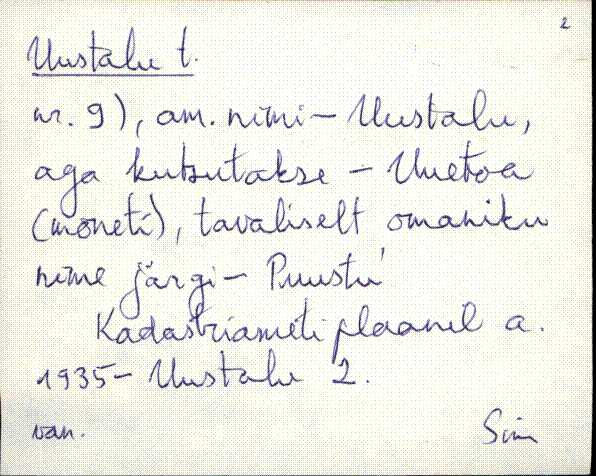 2
Uustalu t.
nr. 9), am. nimi - Uustalu,
aga kutsutakse - Uuetoa
(mõneti), tavaliselt omaniku
nime järgi - Puustu
Kadastriameti plaanil a.
1935 - Uustalu 2.
van. Sim